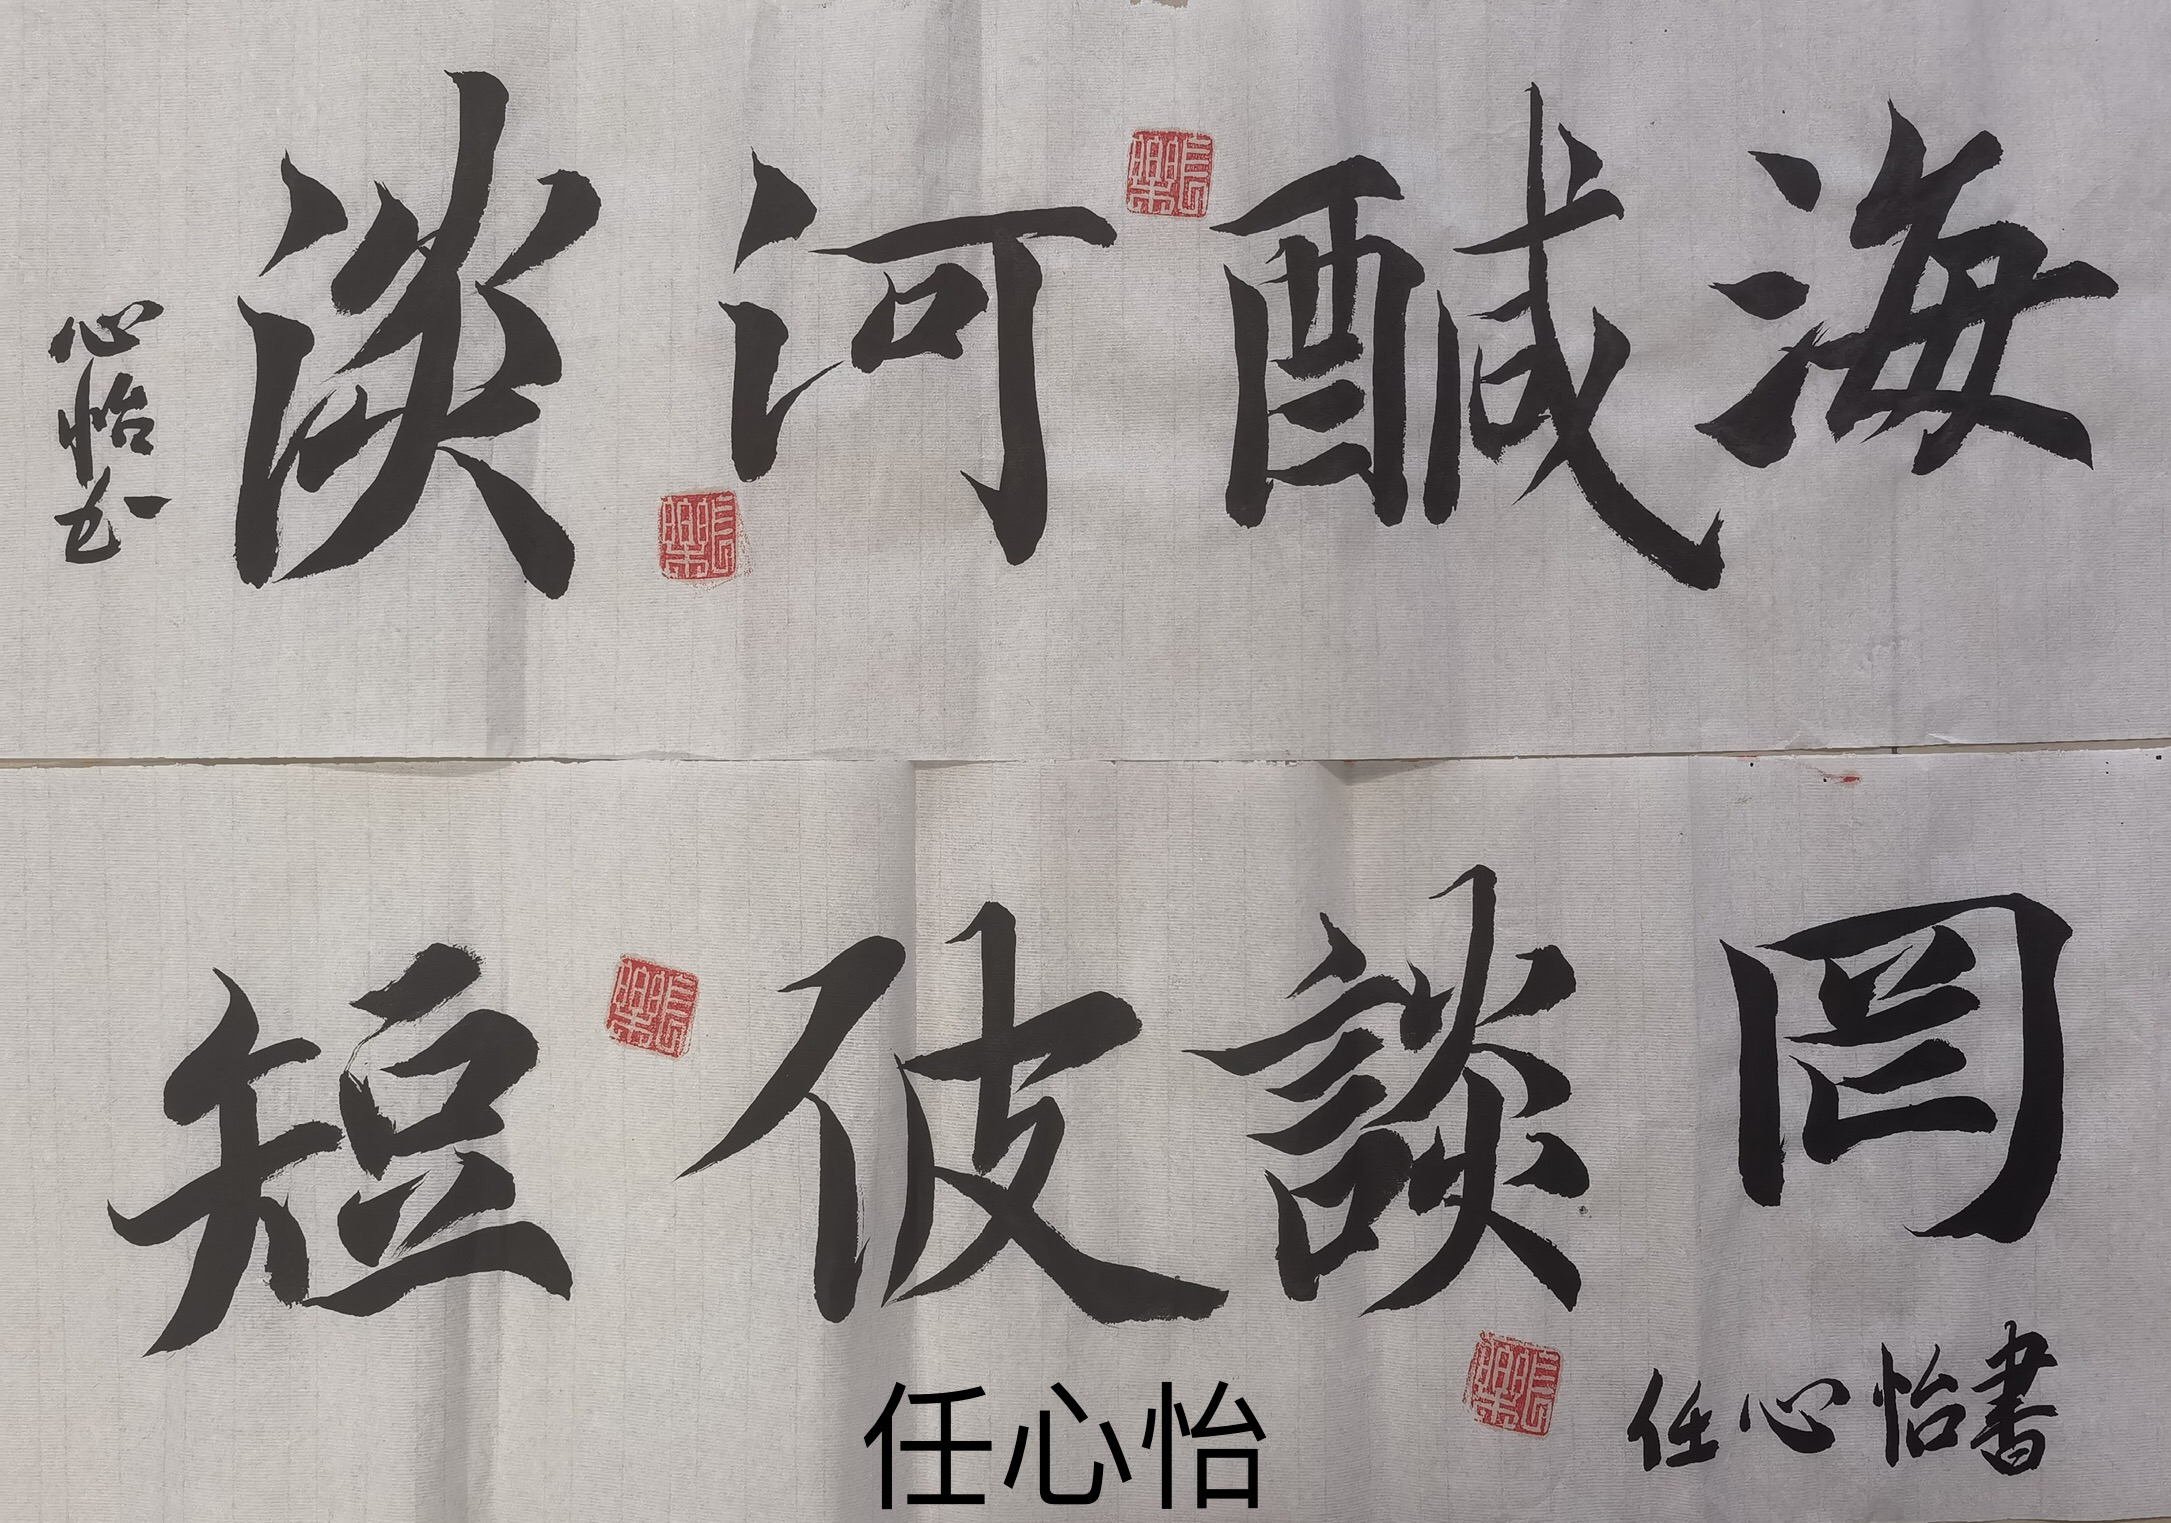 海醎河淡
心怡书
罔談彼短
任心怡書
任心怡